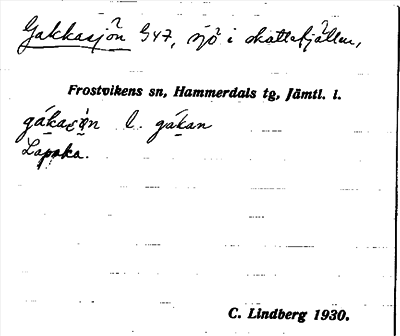 Gakkasjön 947, sjö i skattefjällen,
Frostvikens sn, Hammerdals tg, Jämtl. l.
l. gákan
Lapska.
C. Lindberg 1930.